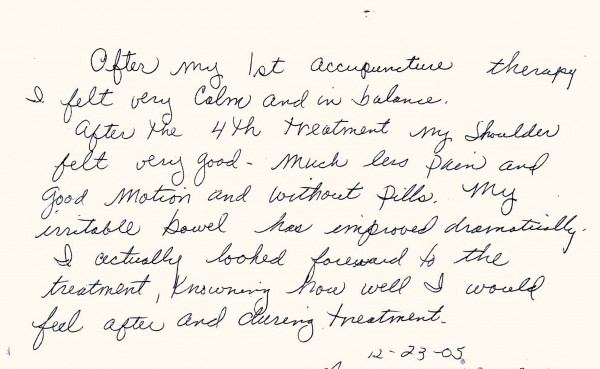 After my 1st accupuncture therapy
I felt very Calm and in balance.
After the 4th treatment my shoulder
felt very good - Much less pain and
good Motion and without pills. My
irritable bowel has improved dramatically.
I actually looked foreward to the
treatment, Knowning how well I would
feel after and dureng treatment.
12-23-05